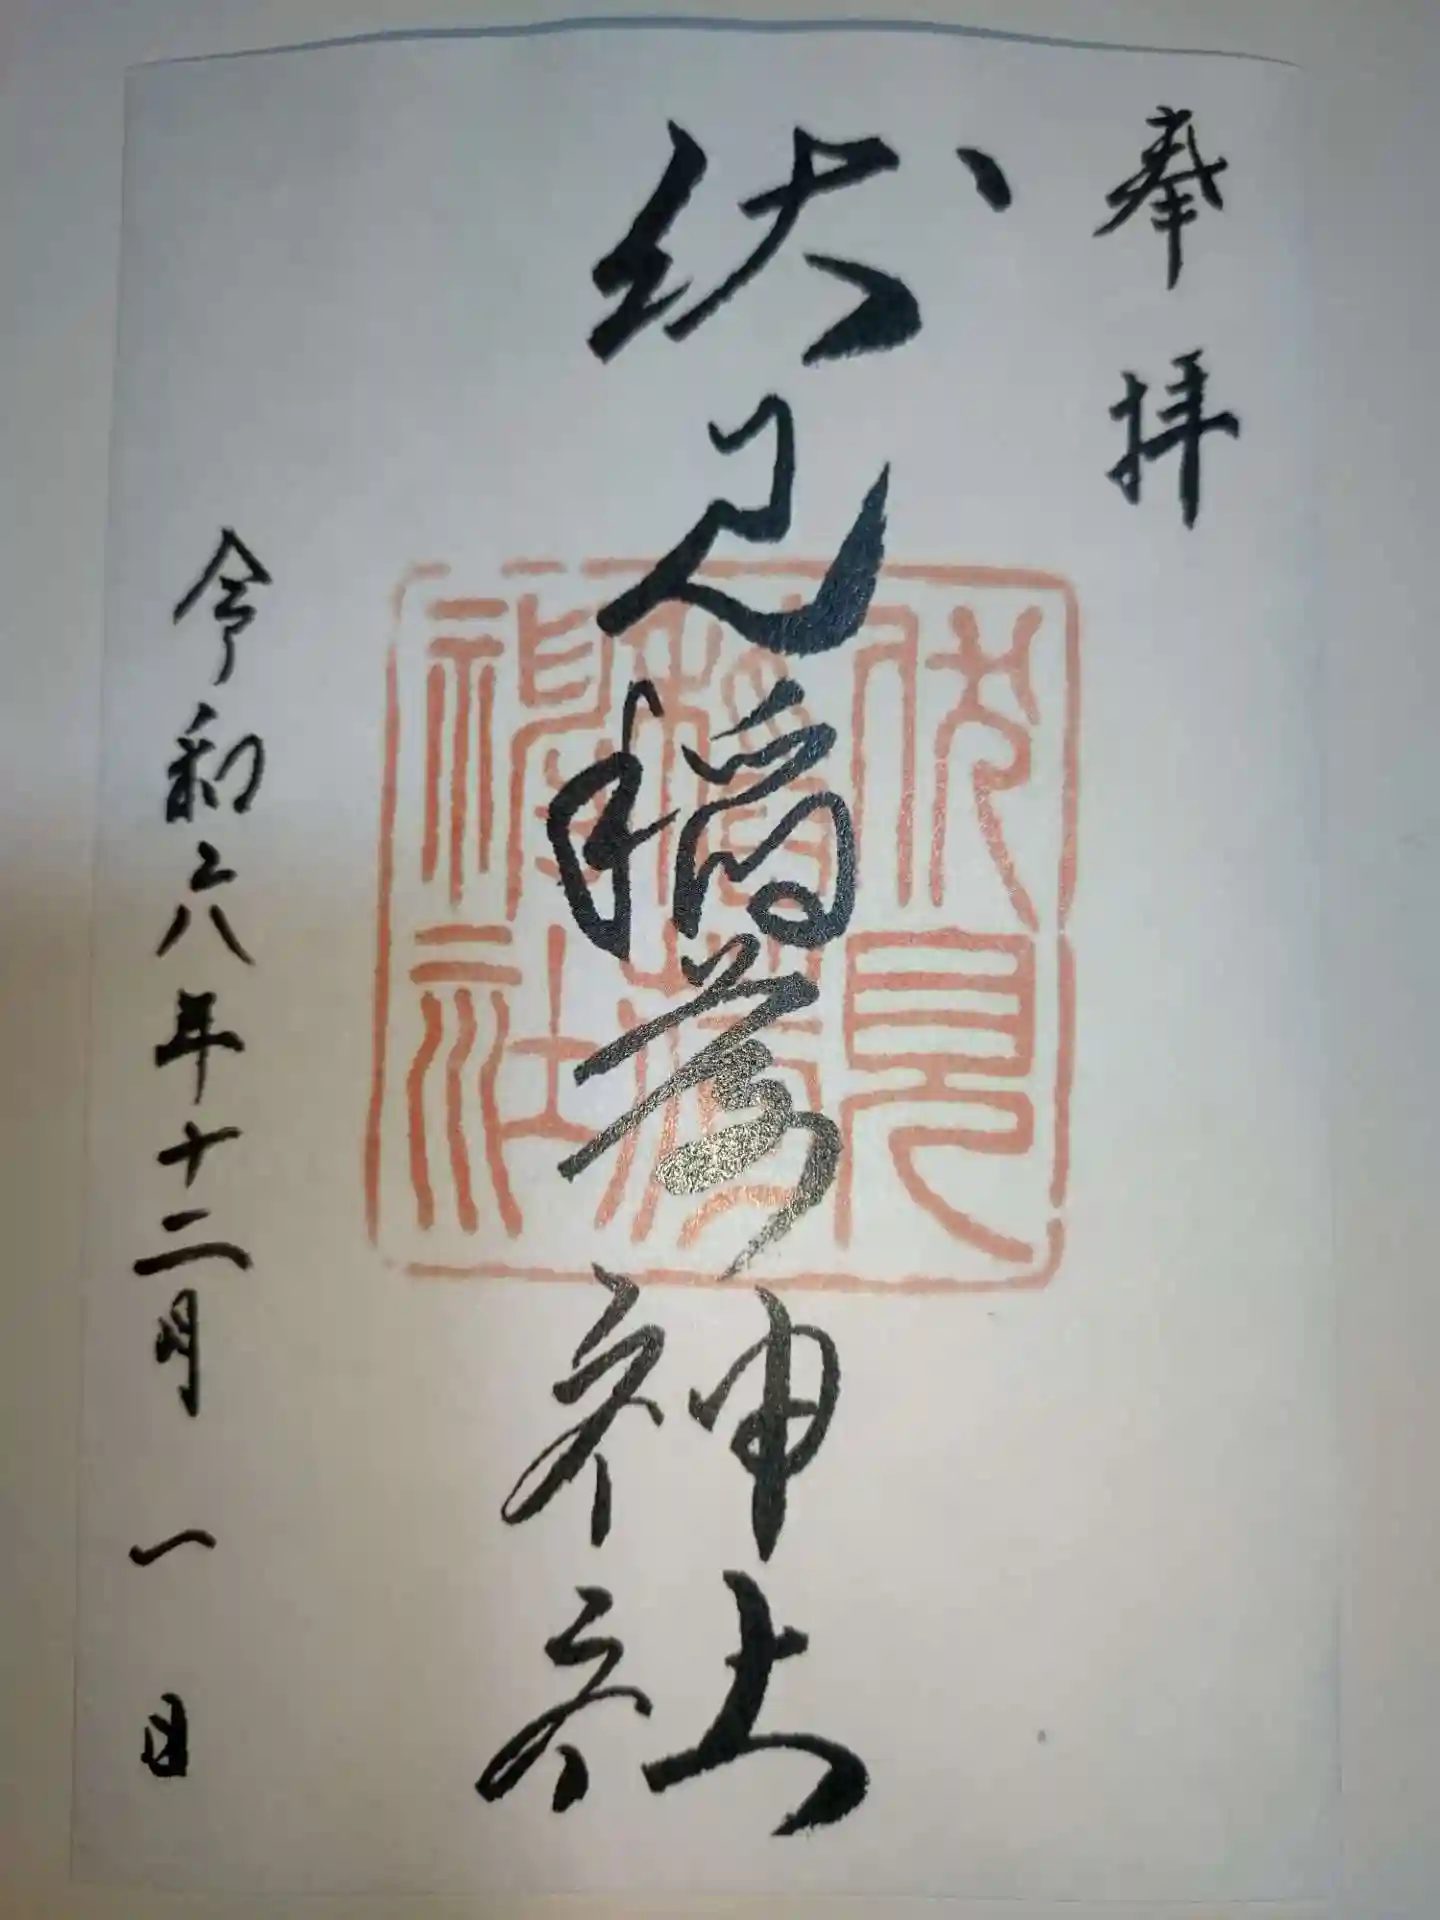 奉拝
伏見稲荷神社
伏見
稲荷
神社
令和六年十二月一日